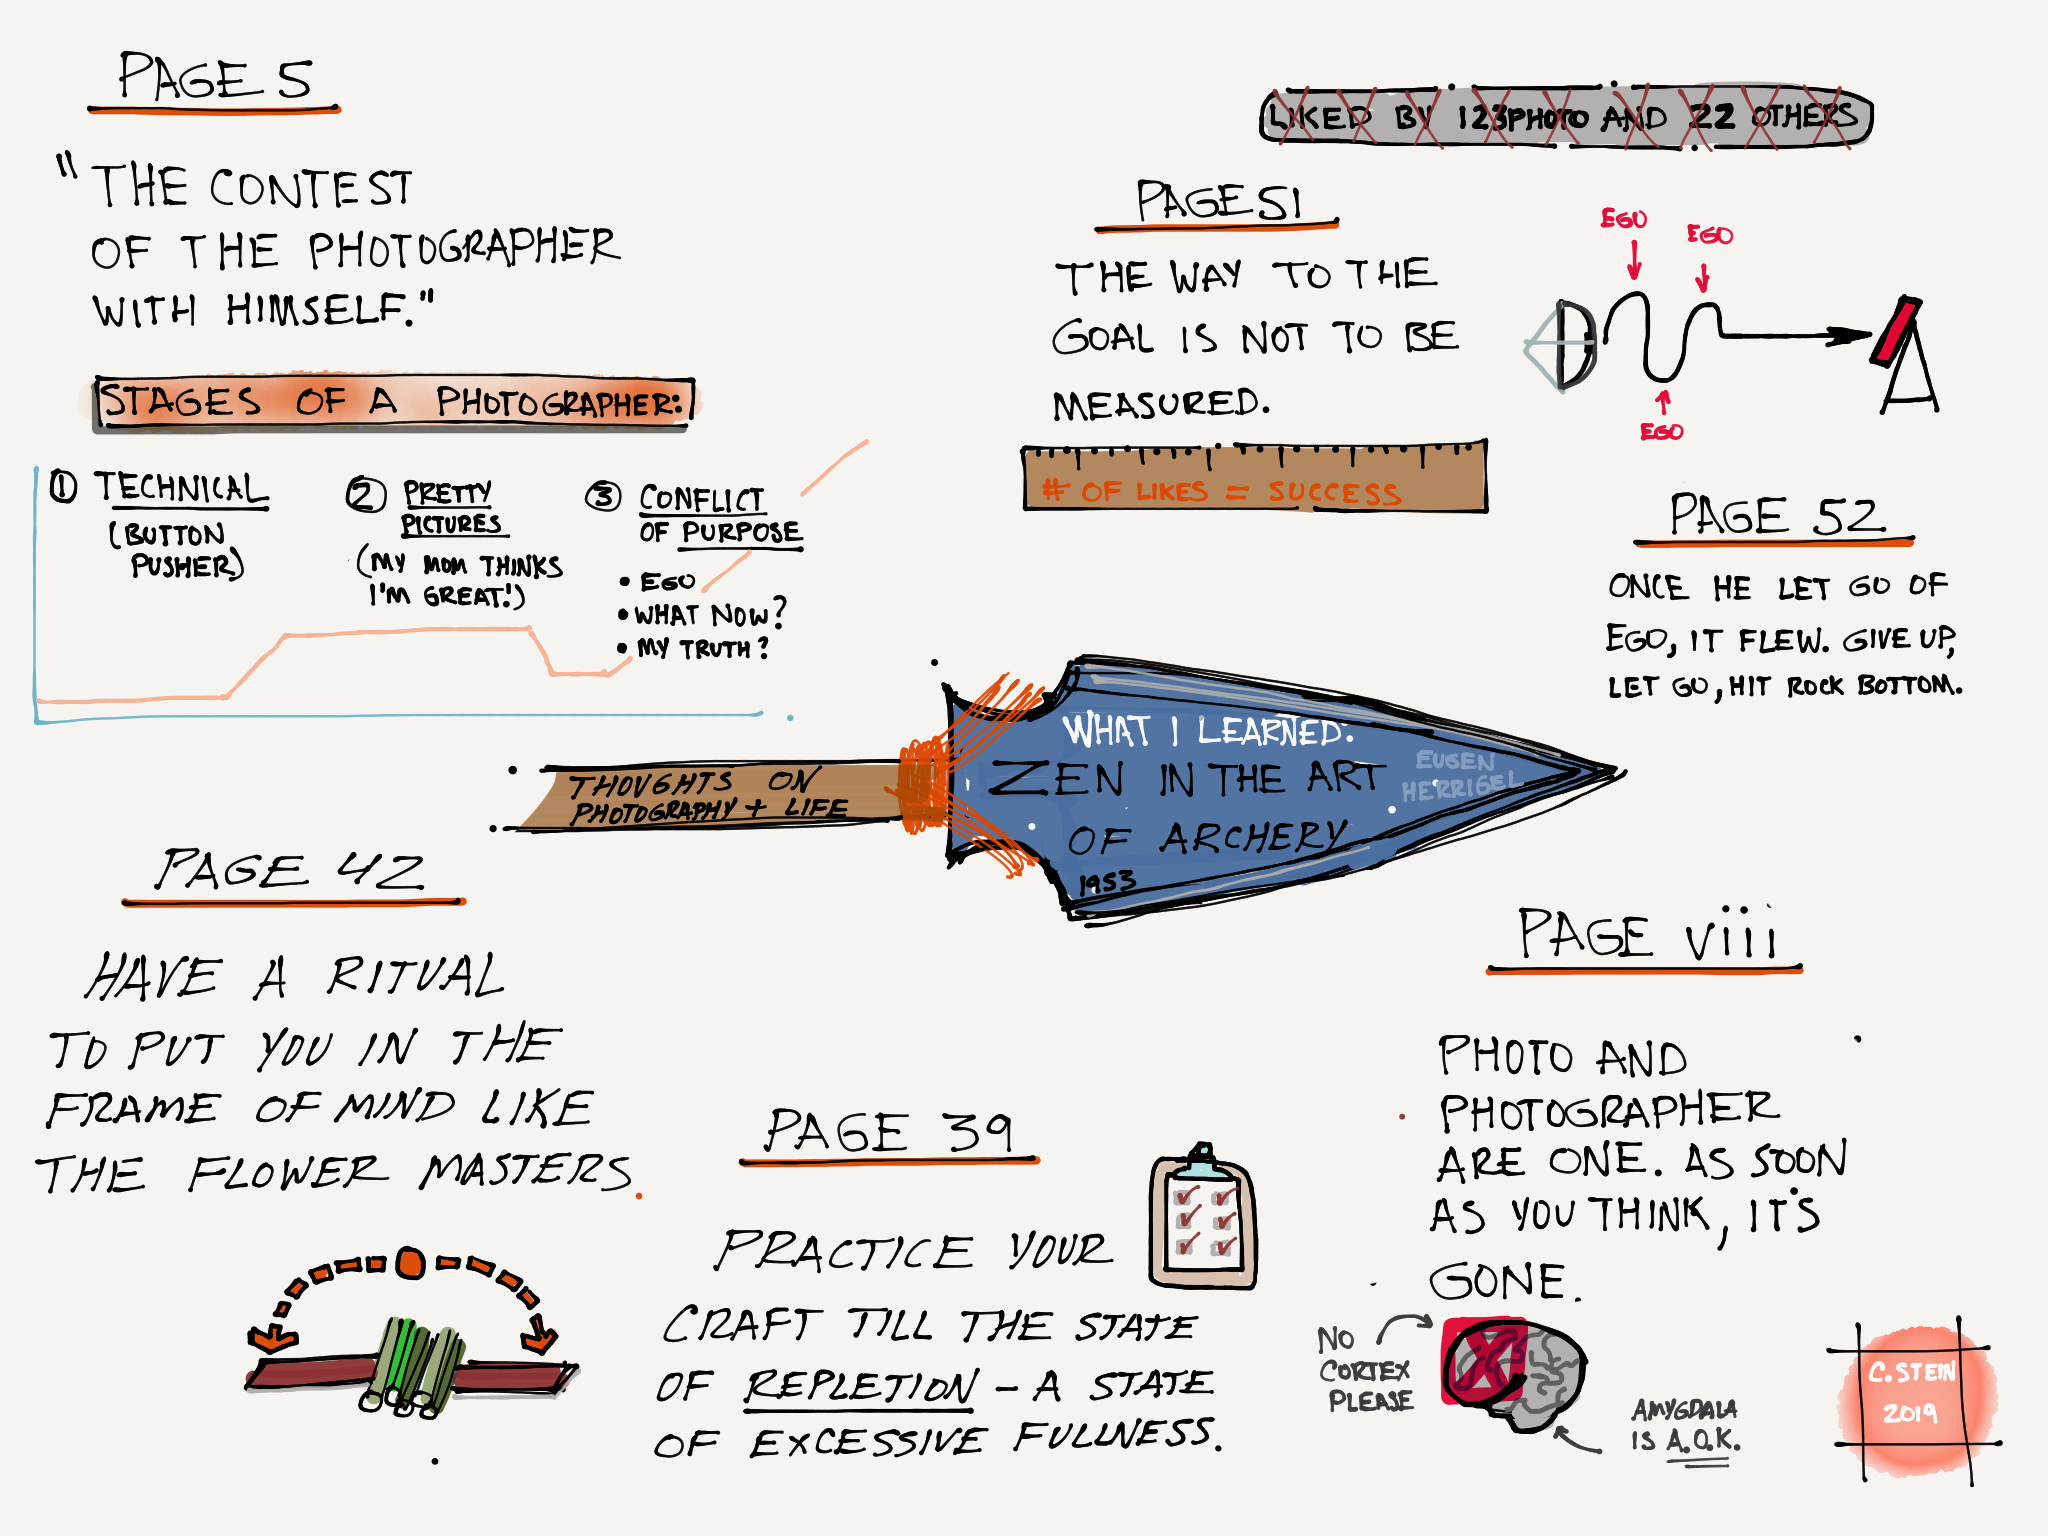 PAGE 5
"THE CONTEST
OF THE PHOTOGRAPHER
WITH HIMSELF."
STAGES OF A PHOTOGRAPHER:
① TECHNICAL
(BUTTON
PUSHER)
② PRETTY
PICTURES
(MY MOM THINKS
I'M GREAT!)
③ CONFLICT
OF PURPOSE
• EGO
• WHAT NOW?
• MY TRUTH?
LIKED BY 123PHOTO AND 22 OTHERS
PAGE 51
THE WAY TO THE
GOAL IS NOT TO BE
MEASURED.
# OF LIKES = SUCCESS
EGO
EGO
EGO
PAGE 52
ONCE HE LET GO OF
EGO, IT FLEW. GIVE UP,
LET GO, HIT ROCK BOTTOM.
THOUGHTS ON
PHOTOGRAPHY + LIFE
WHAT I LEARNED:
ZEN IN THE ART
OF ARCHERY
1953
EUGEN
HERRIGEL
PAGE 42
HAVE A RITUAL
TO PUT YOU IN THE
FRAME OF MIND LIKE
THE FLOWER MASTERS.
PAGE 39
PRACTICE YOUR
CRAFT TILL THE STATE
OF REPLETION - A STATE
OF EXCESSIVE FULLNESS.
PAGE viii
PHOTO AND
PHOTOGRAPHER
ARE ONE. AS SOON
AS YOU THINK, IT'S
GONE.
NO
CORTEX
PLEASE
AMYGDALA
IS A.O.K.
C. STEIN
2019